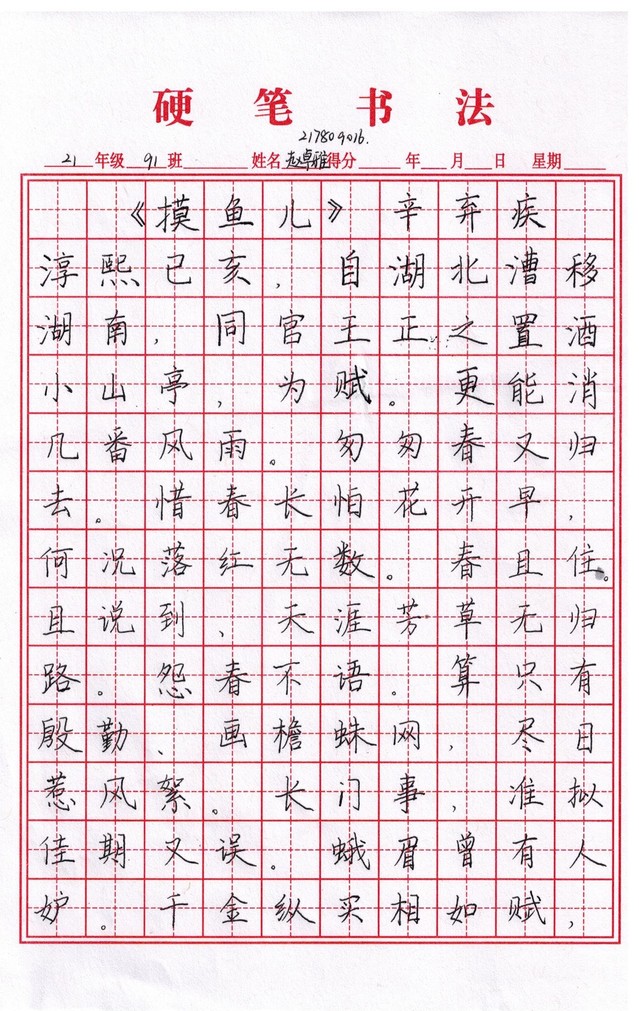 硬笔书法
217809016.
21 年级 91 班 姓名 赵卓雅 得分 年 月 日 星期
《摸鱼儿》 辛弃疾
淳熙已亥，自湖北漕移
湖南，同官王正之置酒
小山亭，为赋。更能消
几番风雨。匆匆春又归
去。惜春长怕花开早，
何况落红无数。春且住。
且说到、天涯芳草无归
路。怨春不语。算只有
殷勤、画檐蛛网，尽日
惹风絮。长门事，准拟
佳期又误。蛾眉曾有人
妒。千金纵买相如赋，